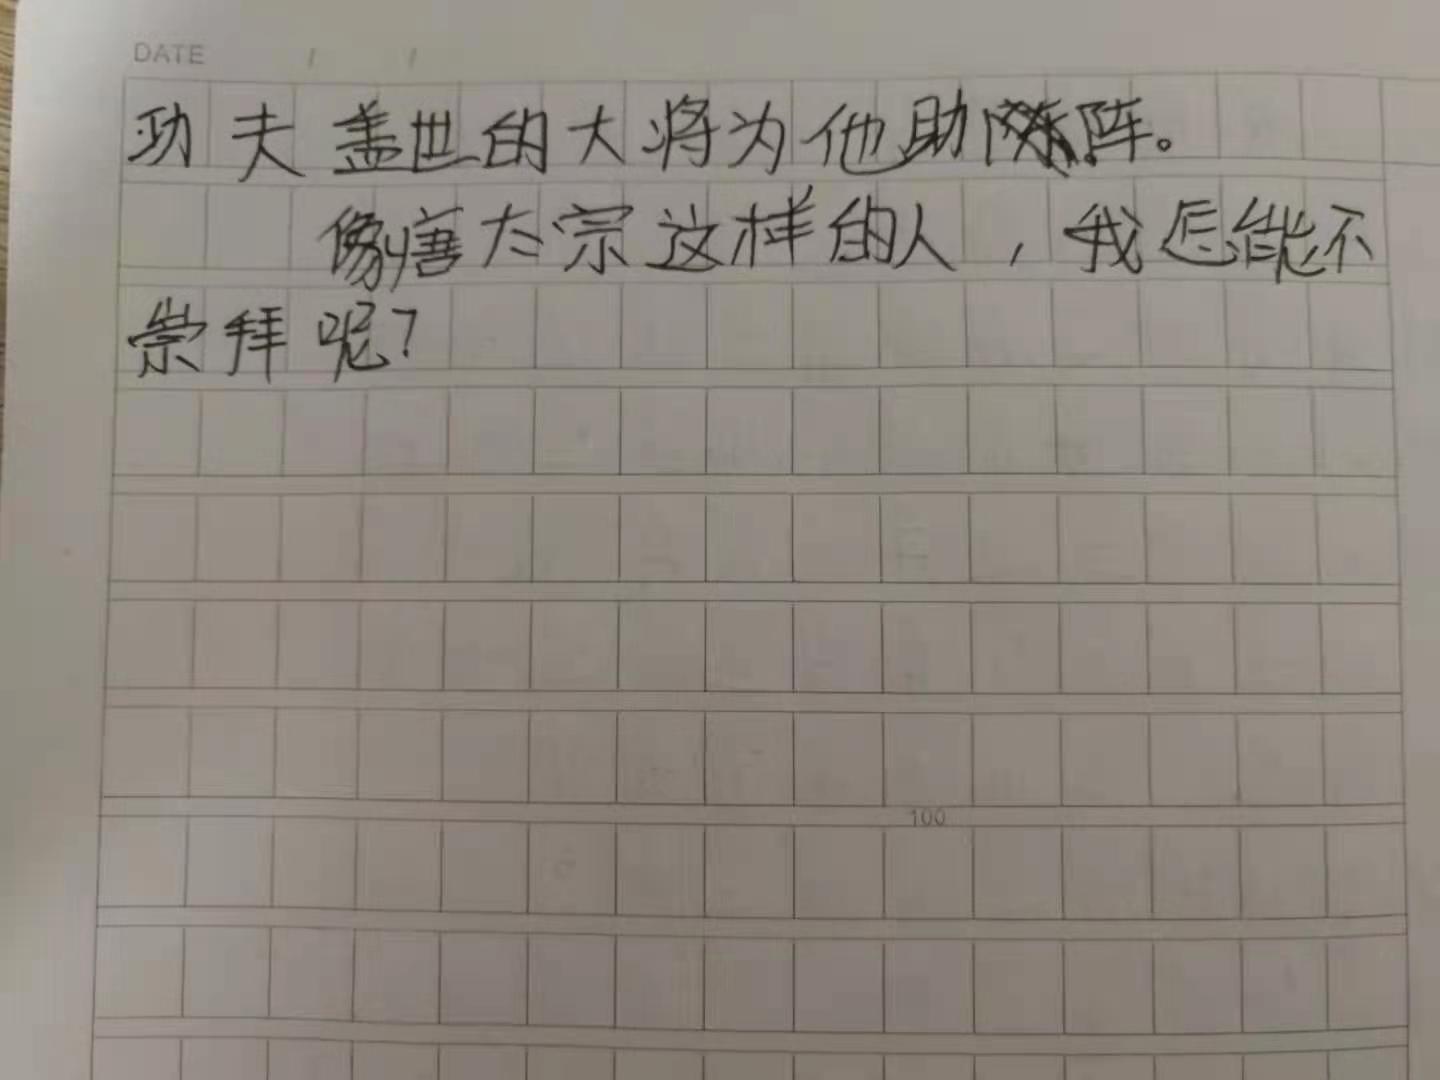 DATE / /
功夫盖世的大将为他助阵。
像唐太宗这样的人，我怎能不
崇拜呢？
100